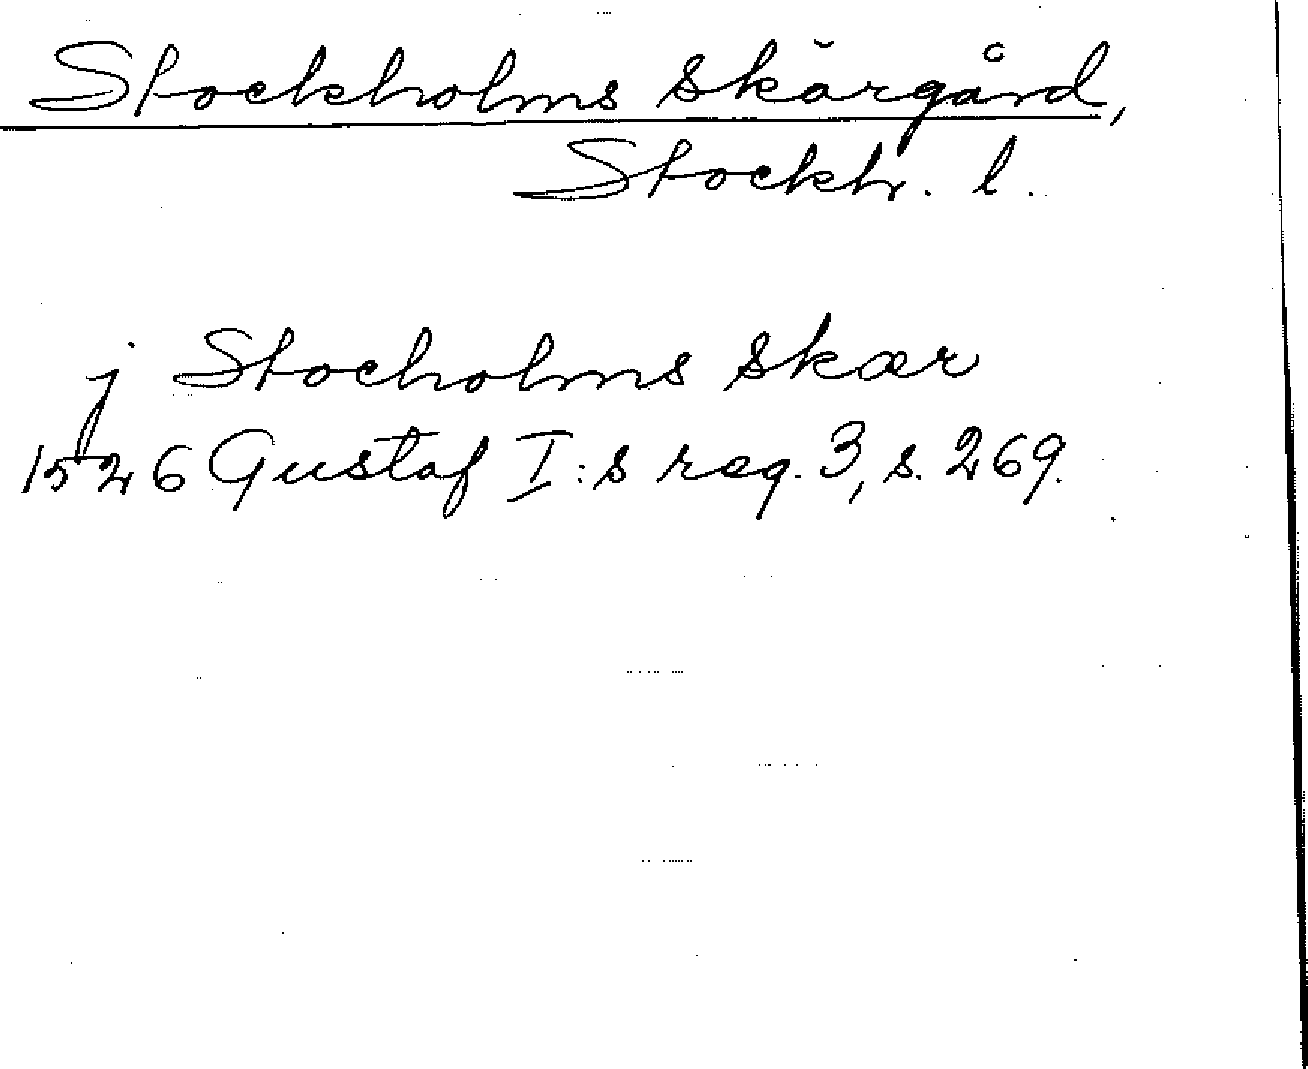 Stockholms skärgård,
Stockh. l.
j Stocholms skær
1526 Gustaf I:s reg. 3, s. 269.